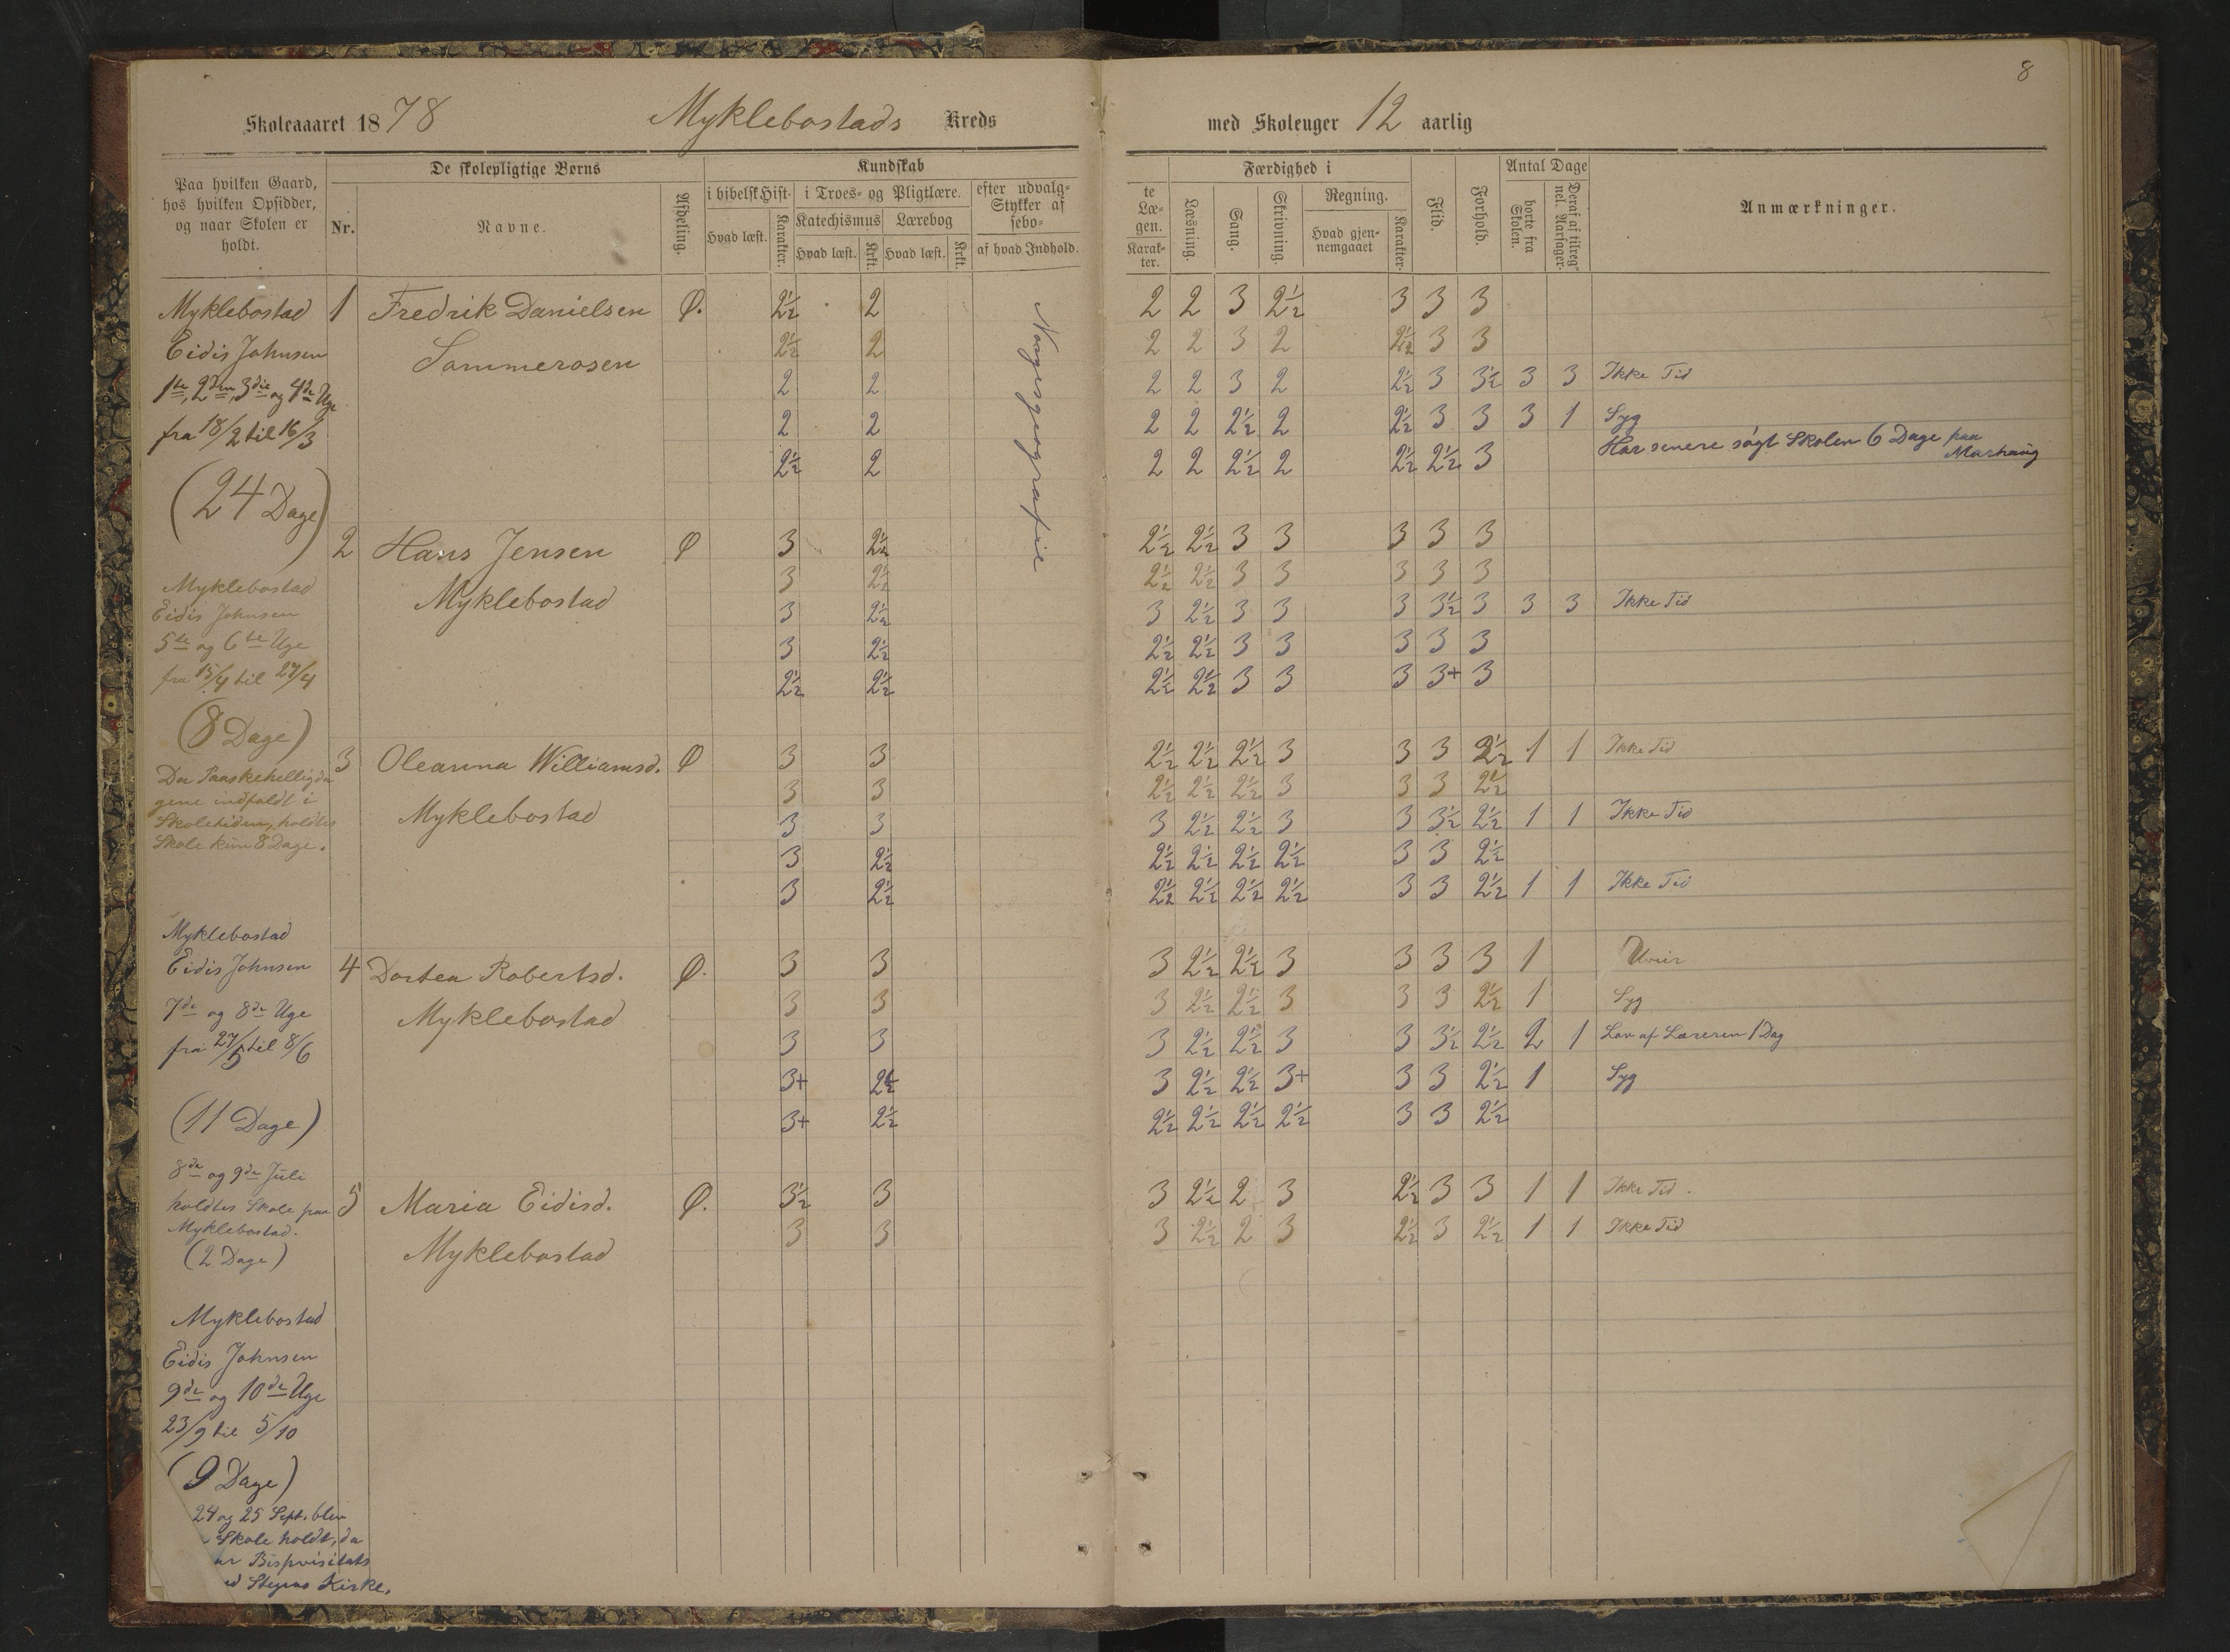 8
Skoleaaaret 1878 Myklebostads Kreds
med Skoleuger 12 aarlig
Paa hvilken Gaard, hos hvilken Opsidder, og naar Skolen er holdt.
De skolepligtige Børns
Nr.
Navne.
Afdeling.
Kundskab
i bibelsk Hist.
Hvad læst.
Karakter.
i Troes- og Pligtlære.
Katechismus
Hvad læst.
Krkt.
Lærebog
Hvad læst.
Krkt.
efter udvalg-
Stykker af
sebo-
af hvad Indhold.
te
Læ-
gen.
Karak-
ter.
Færdighed i
Læsning.
Sang.
Skrivning.
Regning.
Hvad gjen-
nemgaaet
Karakter.
Flid.
Forhold.
Antal Dage
borte fra Skolen.
Deraf af tilreg-
nel. Aarsager.
Anmærkninger.
Myklebostad
Eidis Johnsen
1ste, 2den, 3die og 4de Uge
fra 18/2 til 16/3
(24 Dage)
Myklebostad
Eidis Johnsen
5te og 6te Uge
fra 15/4 til 27/4
(8 Dage)
Da Paaskehelligda
gene indfaldt i
Skoletiden, holdtes
Skole kun 8 Dage.
Myklebostad
Eidis Johnsen
7de og 8de Uge
fra 27/5 til 8/6
(11 Dage)
8de og 9de Juli
holdtes Skole paa
Myklebostad.
(2 Dage)
Myklebostad
Eidis Johnsen
9de og 10de Uge
23/9 til 5/10
(9 Dage)
24 og 25 Sept. blev
Skole holdt, da
Bispvisitats
Kirke.
Norgesgeografie
1 Fredrik Danielsen Ø. 2½ 2 2 2 3 2½ 3 3 3
Sommerosen 2½ 2 2 2 3 2 2½ 3 3
2 2 2 2 3 2 2½ 3 3½ 3 3 Ikke Tid
2 2 2 2 2½ 2 2½ 3 3 3 1 Syg
2½ 2 2 2 2½ 2 2½ 2½ 3 Har senere søgt Skolen 6 Dage paa
Marhaug
2 Hans Jensen Ø 3 2½ 2½ 2½ 3 3 3 3 3
Myklebostad 3 2½ 2½ 2½ 3 3 3 3 3
3 2½ 3 2½ 3 3 3 3½ 3 3 3 Ikke Tid
3 2½ 2½ 2½ 3 3 3 3 3
2½ 2½ 2½ 2½ 3 3 3 3+ 3
3 Oleanna Williamsd. Ø 3 3 2½ 2½ 2½ 3 3 3 2½ 1 1 Ikke Tid
Myklebostad 3 3 2½ 2½ 2½ 3 3 3 2½
3 3 3 2½ 2½ 3 3 3½ 2½ 1 1 Ikke Tid
3 2½ 2½ 2½ 2½ 2½ 3 3 2½
3 2½ 2½ 2½ 2½ 2½ 3 3 2½ 1 1 Ikke Tid
4 Dortea Robertsd. Ø. 3 3 3 2½ 2½ 3 3 3 3 1 Uveir
Myklebostad 3 3 3 2½ 2½ 3 3 3 2½ 1 Syg
3 3 3 2½ 2½ 3 3 3½ 2½ 2 1 Lov af Læreren 1 Dag
3+ 2½ 3 2½ 2½ 3+ 3 3 2½ 1 Syg
3+ 2½ 2½ 2½ 2½ 2½ 3 3 2½
5 Maria Eidisd. Ø. 3½ 3 3 2½ 2 3 2½ 3 3 1 1 Ikke Tid.
Myklebostad 3 3 3 2½ 2 3 2½ 3 2½ 1 1 Ikke Tid